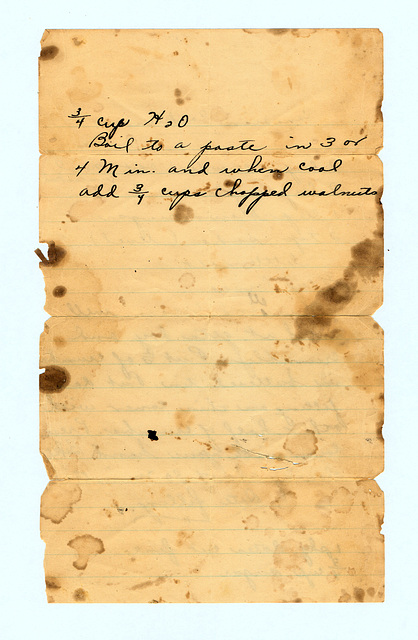 3/4 cup H2O
Boil to a paste in 3 or
4 Min. and when cool
add 3/4 cups chopped walnuts